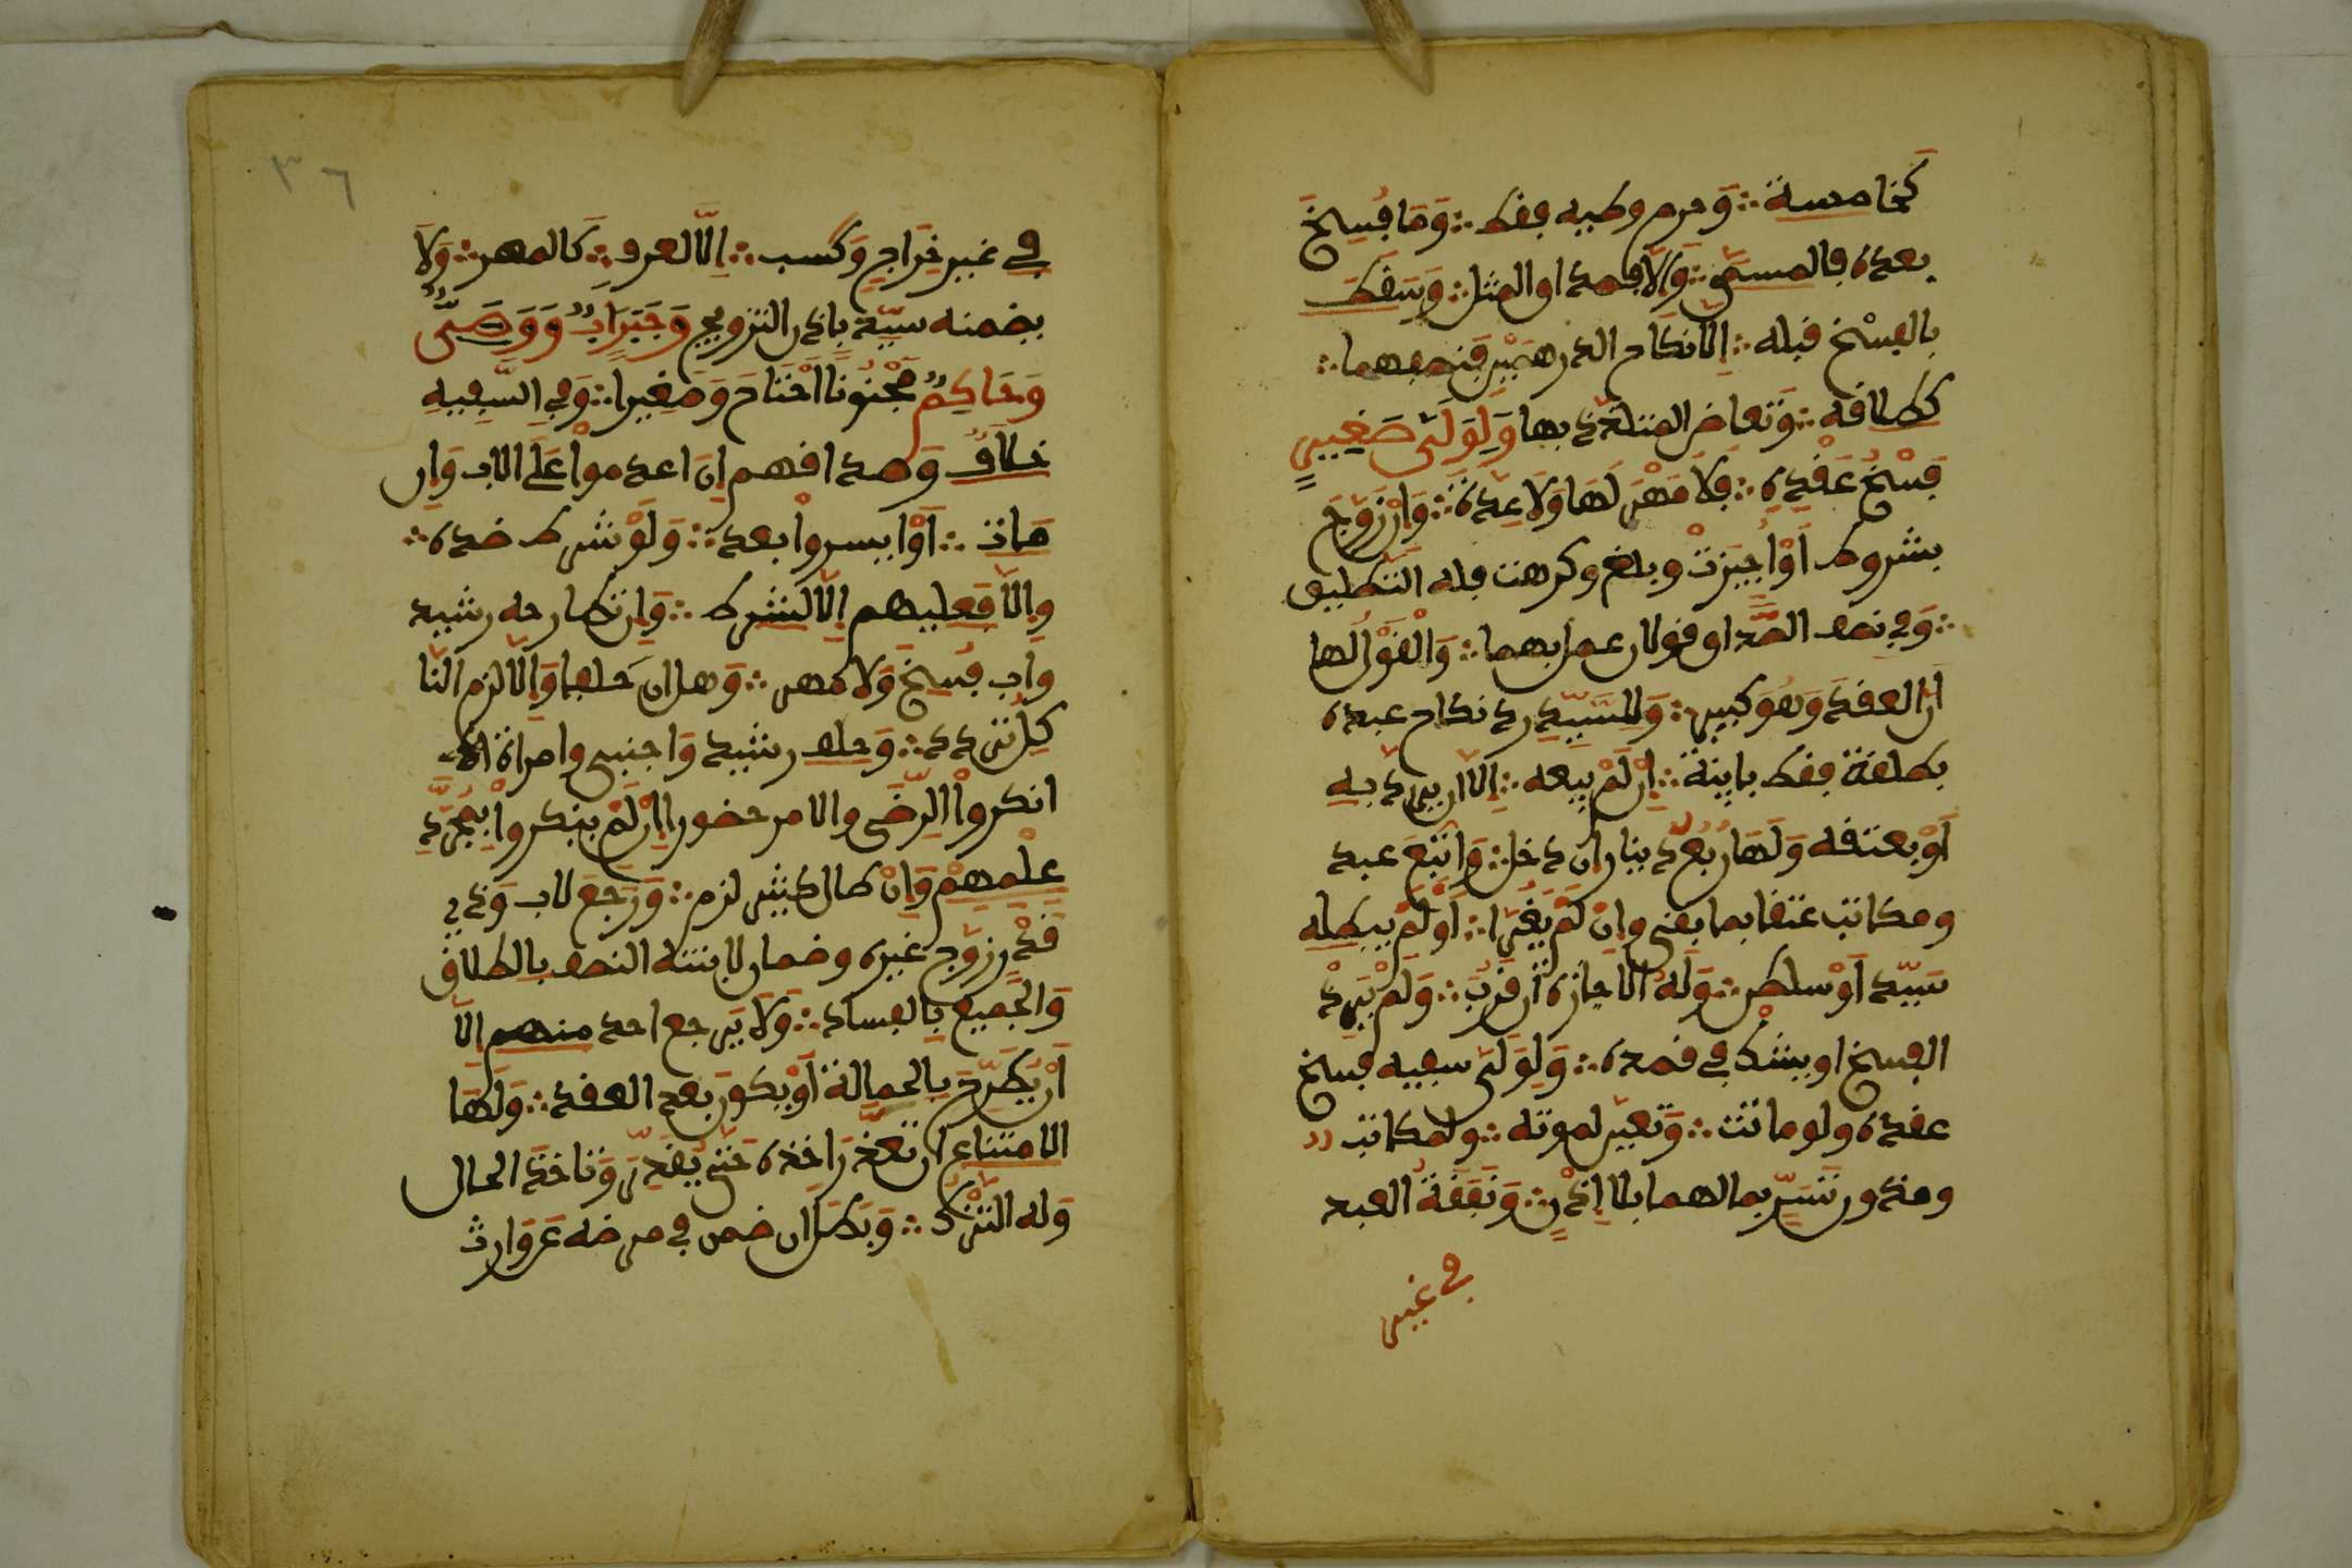 كخامسة ∴ وَحرم وطيه فقط ∴ وَمَا فُسِخَ
بعده فالمسمى ∴ وَإِلَّا فصداق المثل ∴ وَسَقَطَ
بالفسْخ قبله ∴ إلا نكاح الدرهمَيْنِ فنصفهما ∴
كطلاقه ∴ وَتعاض المتلذذ بها وَلِوَلِىِّ صَغِيرٍ
فَسْخُ عَقْدِهِ ∴ فَلَا مَهْرَ لَهَا وَلَا عِدَّةَ ∴ وَإنْ زُوِّجَ
بشروط أوْ أُجِيزَتْ وبلغ وكرهت فله التطليق
∴ وَفي نصف الصَّداق قولان عمل بهما ∴ وَالْقَوْلُ لها
أنَّ العقدَ وَهُوَ كبير ∴ وَلِلسَّيِّدِ رد نكاح عبده
بطلقة فقط باينة ∴ إنْ لَمْ يبعه ∴ إلا أن يرد به
أَوْ يعتقه وَلَهَا رُبُعُ دينار ان دخل ∴ وَاتُّبِعَ عبد
ومكاتب عتقا بما بقي وإنْ لَمْ يَغُرَّا ∴ أو لَمْ يبطله
سَيِّد أوْ سلطن ∴ وَلَهُ الاجازة أن قرُبَ ∴ وَلَمْ يَرِدْ
الفسخ او يشك في قصده ∴ وَلِوَلِيِّ سفيه فسخ
عقده ولو ماتت ∴ وَتعين لموته ∴ ولمكاتب
ومذون تَسَرٍّ بمالهما بلا إِذْنٍ ∴ وَنَفَقَةُ العبد
في غير
٣٦
في غير خَرَاجٍ وَكسب ∴ إلَّا لعرف ∴ كالمهر ∴ وَلَا
يضمنه سَيِّد بإذن التزويج وَجَبَرَ أبٌ وَوَصِىٌّ
وَحَاكِمٌ مَجْنُونًا احْتَاجَ وَصغيرا ∴ وَفي السَّفيه
خلافٌ وَصداقهم إن اعدموا عَلَى الاب وَإن
مات ∴ أوْ أيسروا بعد ∴ وَلَوْ شرط ضده ∴
وإلا فَعليهم إلَّا لشرط ∴ وَإن تطارحه رشيد
وأب فُسِخَ وَلَا مهر ∴ وَهل ان حلفا وَإلَّا لزم النا
كِلُ تردد ∴ وَحلف رشيد وَأجنبي وامرأة
انكروا الرِّضى والامر حضورا إنْ لَمْ ينكروا بِمُجَرَّدِ
عِلْمِهِمْ وَإنْ طال كثير لزم ∴ وَرَجَعَ لاب وَذي
قَدْرٍ زوَّج غيره وضمان لابنته النصف بالطلاق
وَالجَميع بالفساد ∴ وَلَا يَرجع احد منهم إلا
أن يُصَرِّحَ بالحمالة أوْ يكون بعد العقد ∴ وَلَهَا
الامتناع ان تعذَّرَ اخذه حَتَّى يُقَدِّرَ وَتاخذَ الحال
وَله التَّرْكُ ∴ وَبَطل ان ضمن في مرضه عن وَارث